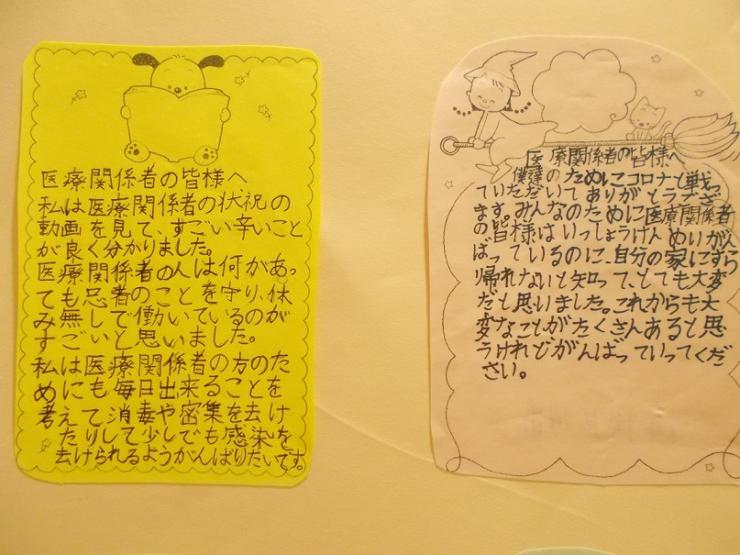 医療関係者の皆様へ
私は医療関係者の状祝の
動画を見て、すごい辛いこと
が良く分かりました。
医療関係者の人は何があっ
ても患者のことを守り、休
み無しで働いているのが
すごいと思いました。
私は医療関係者の方のた
めにも毎日出来ることを
考えて消毒や密集を去け
たりして少しでも感染を
去けられるようがんばりたいです。
医療関係者の皆様へ
僕達のためにコロナと戦っ
ていただいてありがとうござい
ます。みんなのために医療関係者
の皆様はいっしょうけんめいがん
ばっているのに、自分の家にすら
帰れないと知って、とても大変
だと思いました。これからも大
変なことがたくさんあると思
うけれどがんばっていってくだ
さい。